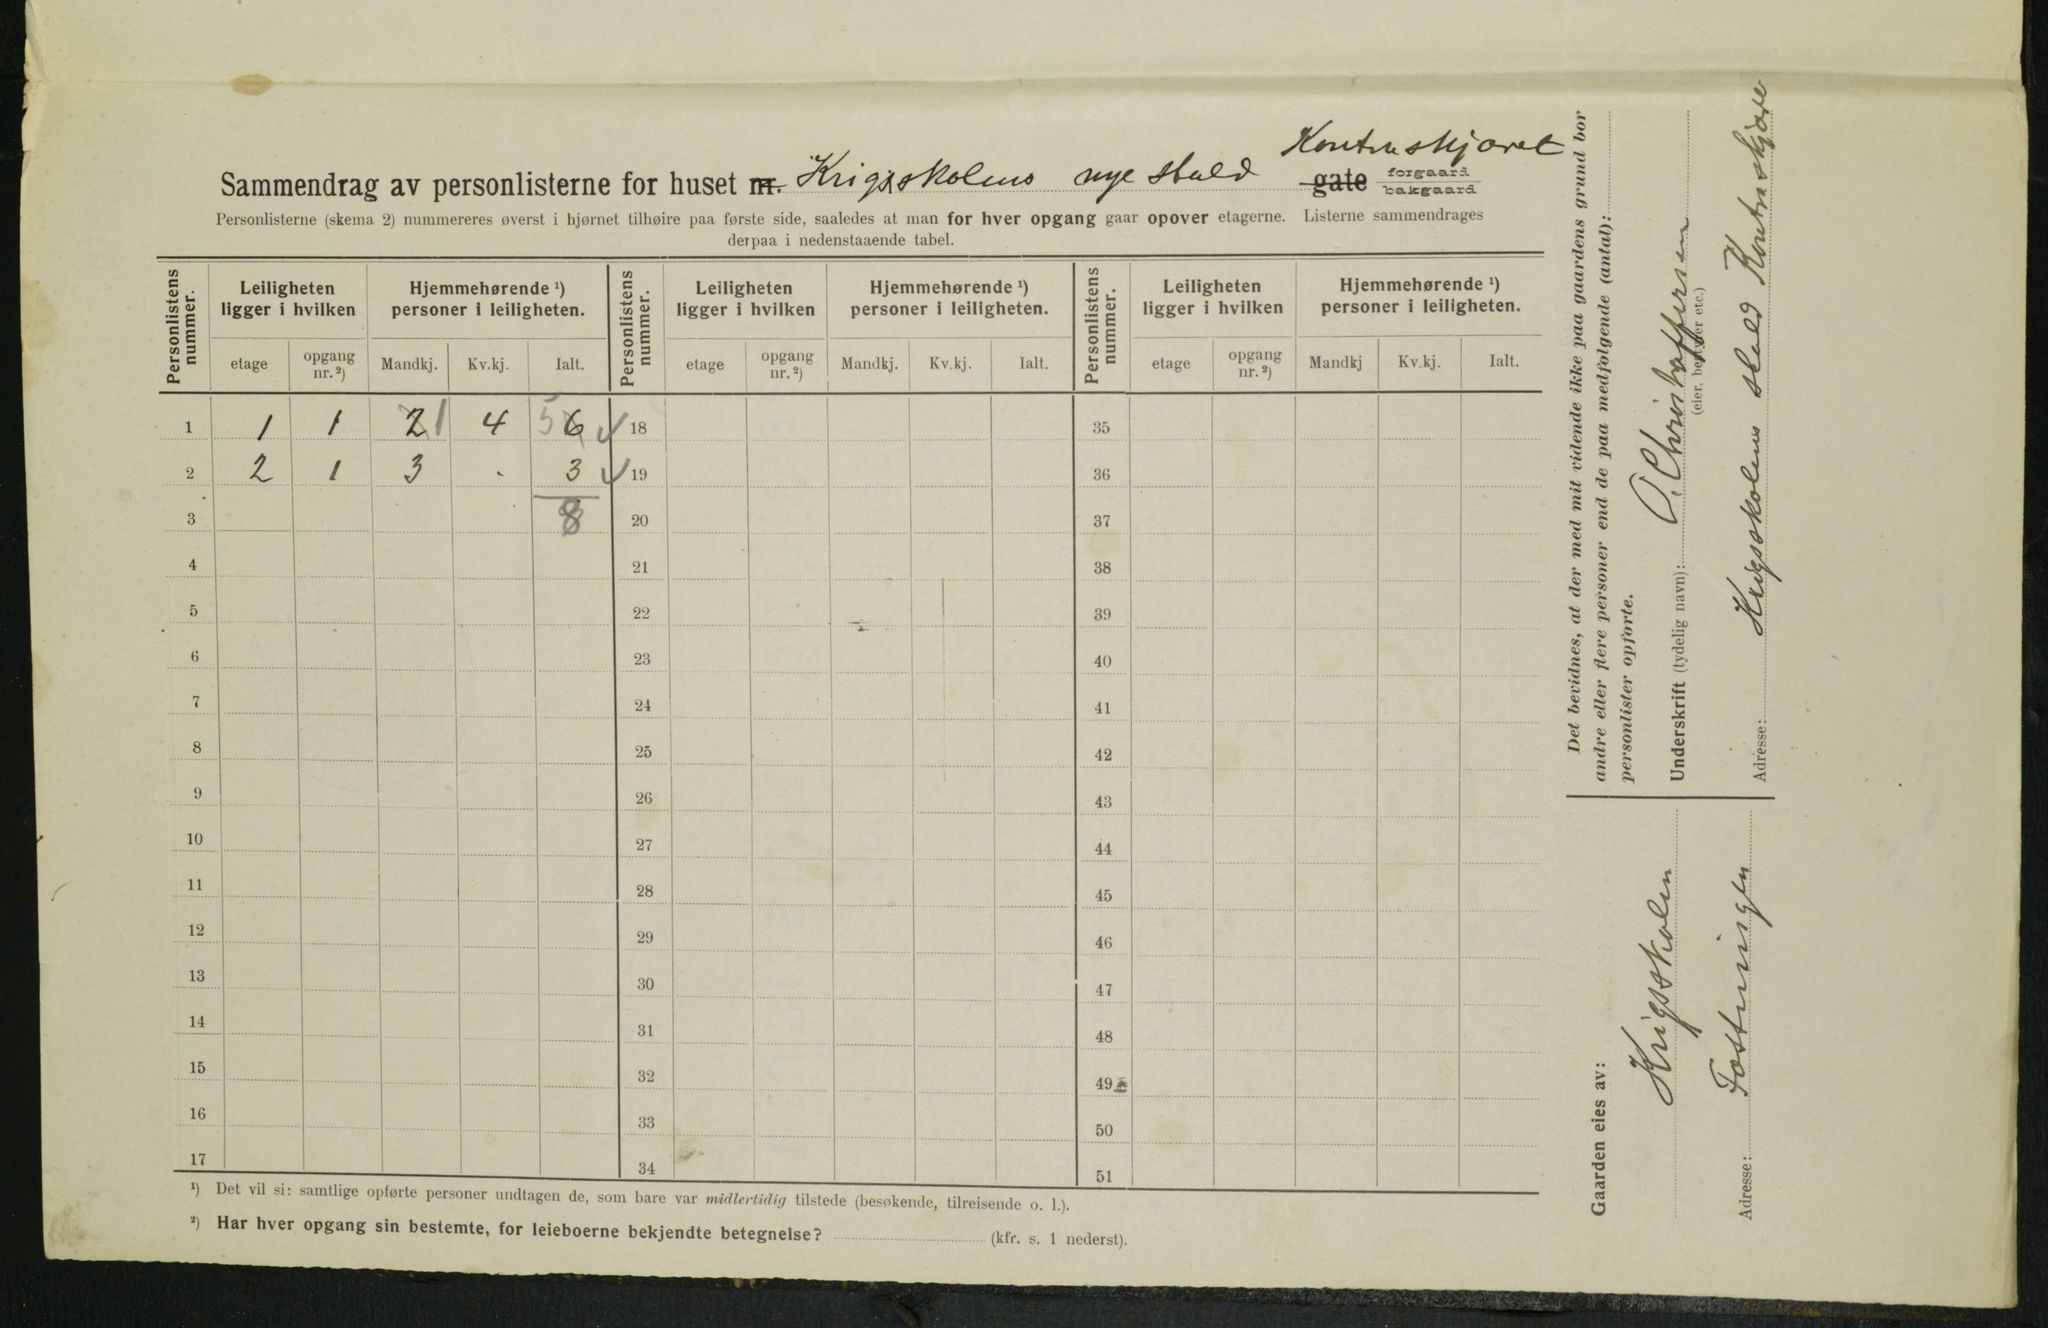 Kontraskjæret
Sammendrag av personlisterne for huset nr. Krigsskolens nye stald gate forgaard bakgaard
Personlisterne (skema 2) nummereres øverst i hjørnet tilhøire paa første side, saaledes at man for hver opgang gaar opover etagerne. Listerne sammendrages
derpaa i nedenstaaende tabel.
Personlistens nummer. Leiligheten ligger i hvilken Hjemmehørende ¹) personer i leiligheten. Personlistens nummer. Leiligheten ligger i hvilken Hjemmehørende ¹) personer i leiligheten. Personlistens nummer. Leiligheten ligger i hvilken Hjemmehørende ¹) personer i leiligheten.
etage opgang nr. ²) Mandkj. Kv.kj. Ialt. etage opgang nr. ²) Mandkj. Kv.kj. Ialt. etage opgang nr. ²) Mandkj Kv.kj. Ialt.
1 1 1 2 1 4 5 6 18 35
2 2 1 3 - 3 19 36
3 8 20 37
4 21 38
5 22 39
6 23 40
7 24 41
8 25 42
9 26 43
10 27 44
11 28 45
12 29 46
13 30 47
14 31 48
15 32 49
16 33 50
17 34 51
¹) Det vil si: samtlige opførte personer undtagen de, som bare var midlertidig tilstede (besøkende, tilreisende o. l.).
²) Har hver opgang sin bestemte, for leieboerne bekjendte betegnelse? (kfr. s. 1 nederst).
Det bevidnes, at der med mit vidende ikke paa gaardens grund bor
andre eller flere personer end de paa medfølgende (antal):
personlister opførte.
Underskrift (tydelig navn): O. Christoffersen
(eier, bestyrer etc.)
Adresse: Krigsskolens stald Kontraskjære
Gaarden eies av:
Krigsskolen
Adresse: Fæstningen